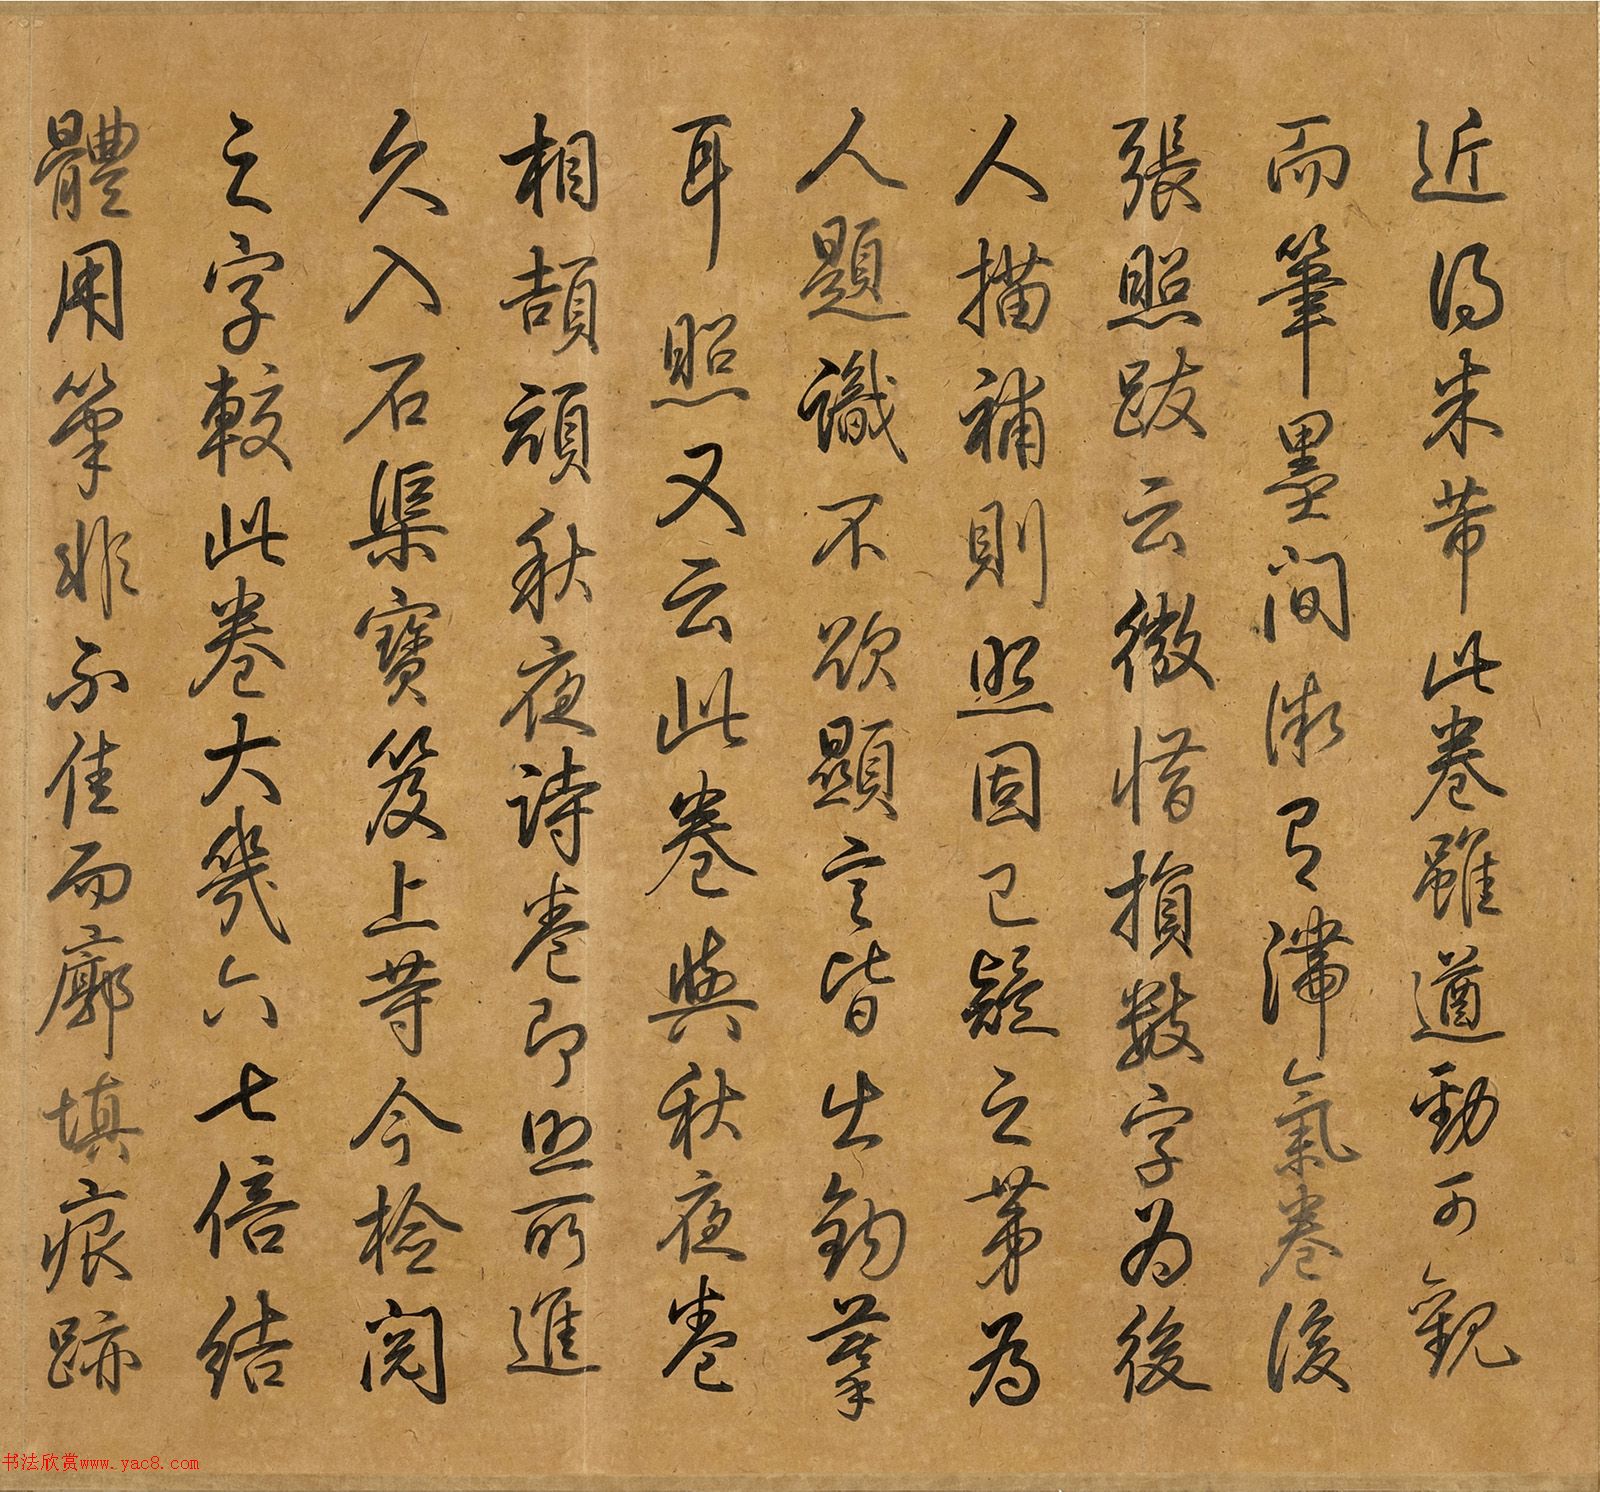 近得米芾此卷雖遒勁可觀
而筆墨間微有滯氣卷後
張照跋云微惜損數字為後
人描補則照固已疑之第為
人題識不欲顯言皆出鉤摹
耳照又云此卷與秋夜卷
相頡頏秋夜詩卷即照所進
久入石渠寶笈上等今檢閱
之字較此卷大幾六七倍結
體用筆非不佳而廓填痕跡
书法欣赏www.yac8.com